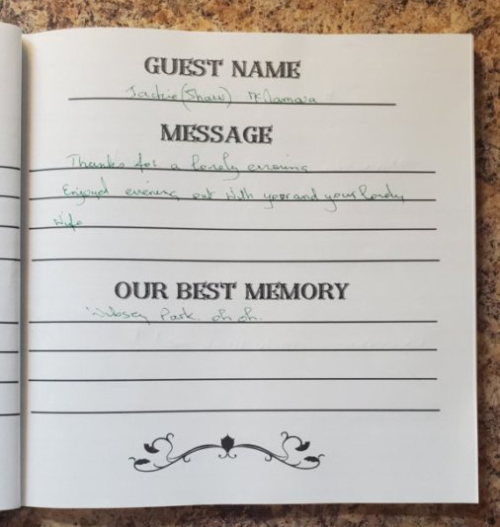 GUEST NAME
Jackie (Shaw) McNamara
MESSAGE
Thanks for a lovely evening
Enjoyed evening out with you and your lovely
wife
OUR BEST MEMORY
Park oh oh.